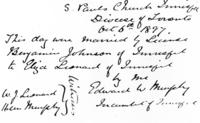 S. Pauls Church Innisfil
Diocese of Toronto
Oct 6th 1897
This day were married by License
Benjamin Johnson of Innisfil
to Eliza Leonard of Innisfil
by me
W J Leonard
Helen Murphy
Witnesses
Edward W Murphy
Incumbent of Innisfil